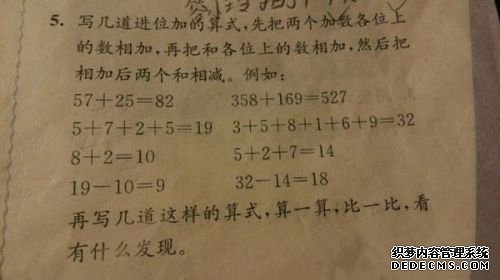 5. 写几道进位加的算式,先把两个加数各位上
的数相加,再把和各位上的数相加,然后把
相加后两个和相减。例如:
57+25=82 358+169=527
5+7+2+5=19 3+5+8+1+6+9=32
8+2=10 5+2+7=14
19-10=9 32-14=18
再写几道这样的算式,算一算,比一比,看
有什么发现。
实用文档内容管理系统
DEDECMS.COM